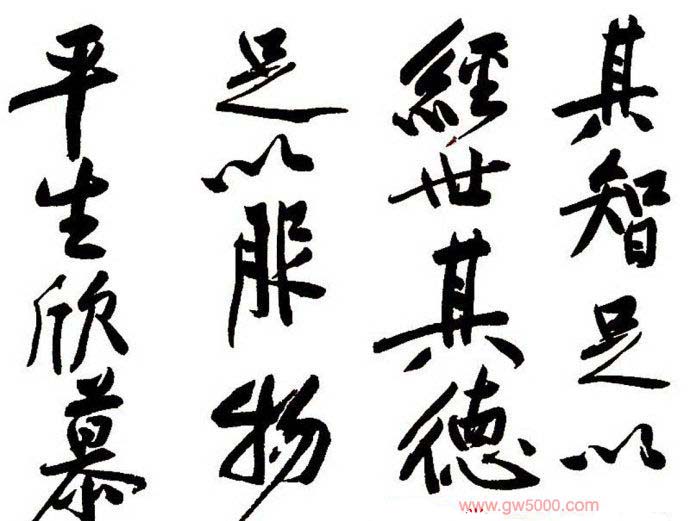 其智足以
經世其德
足以服物
平生欣慕
www.gw5000.com